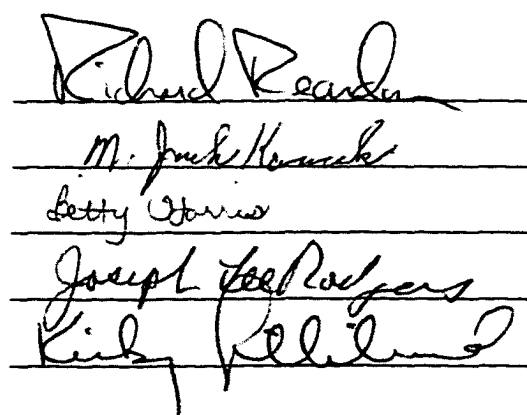 Richard Reardon
M. Jack Kanak
Betty Harris
Joseph Lee Rodgers
Kirby